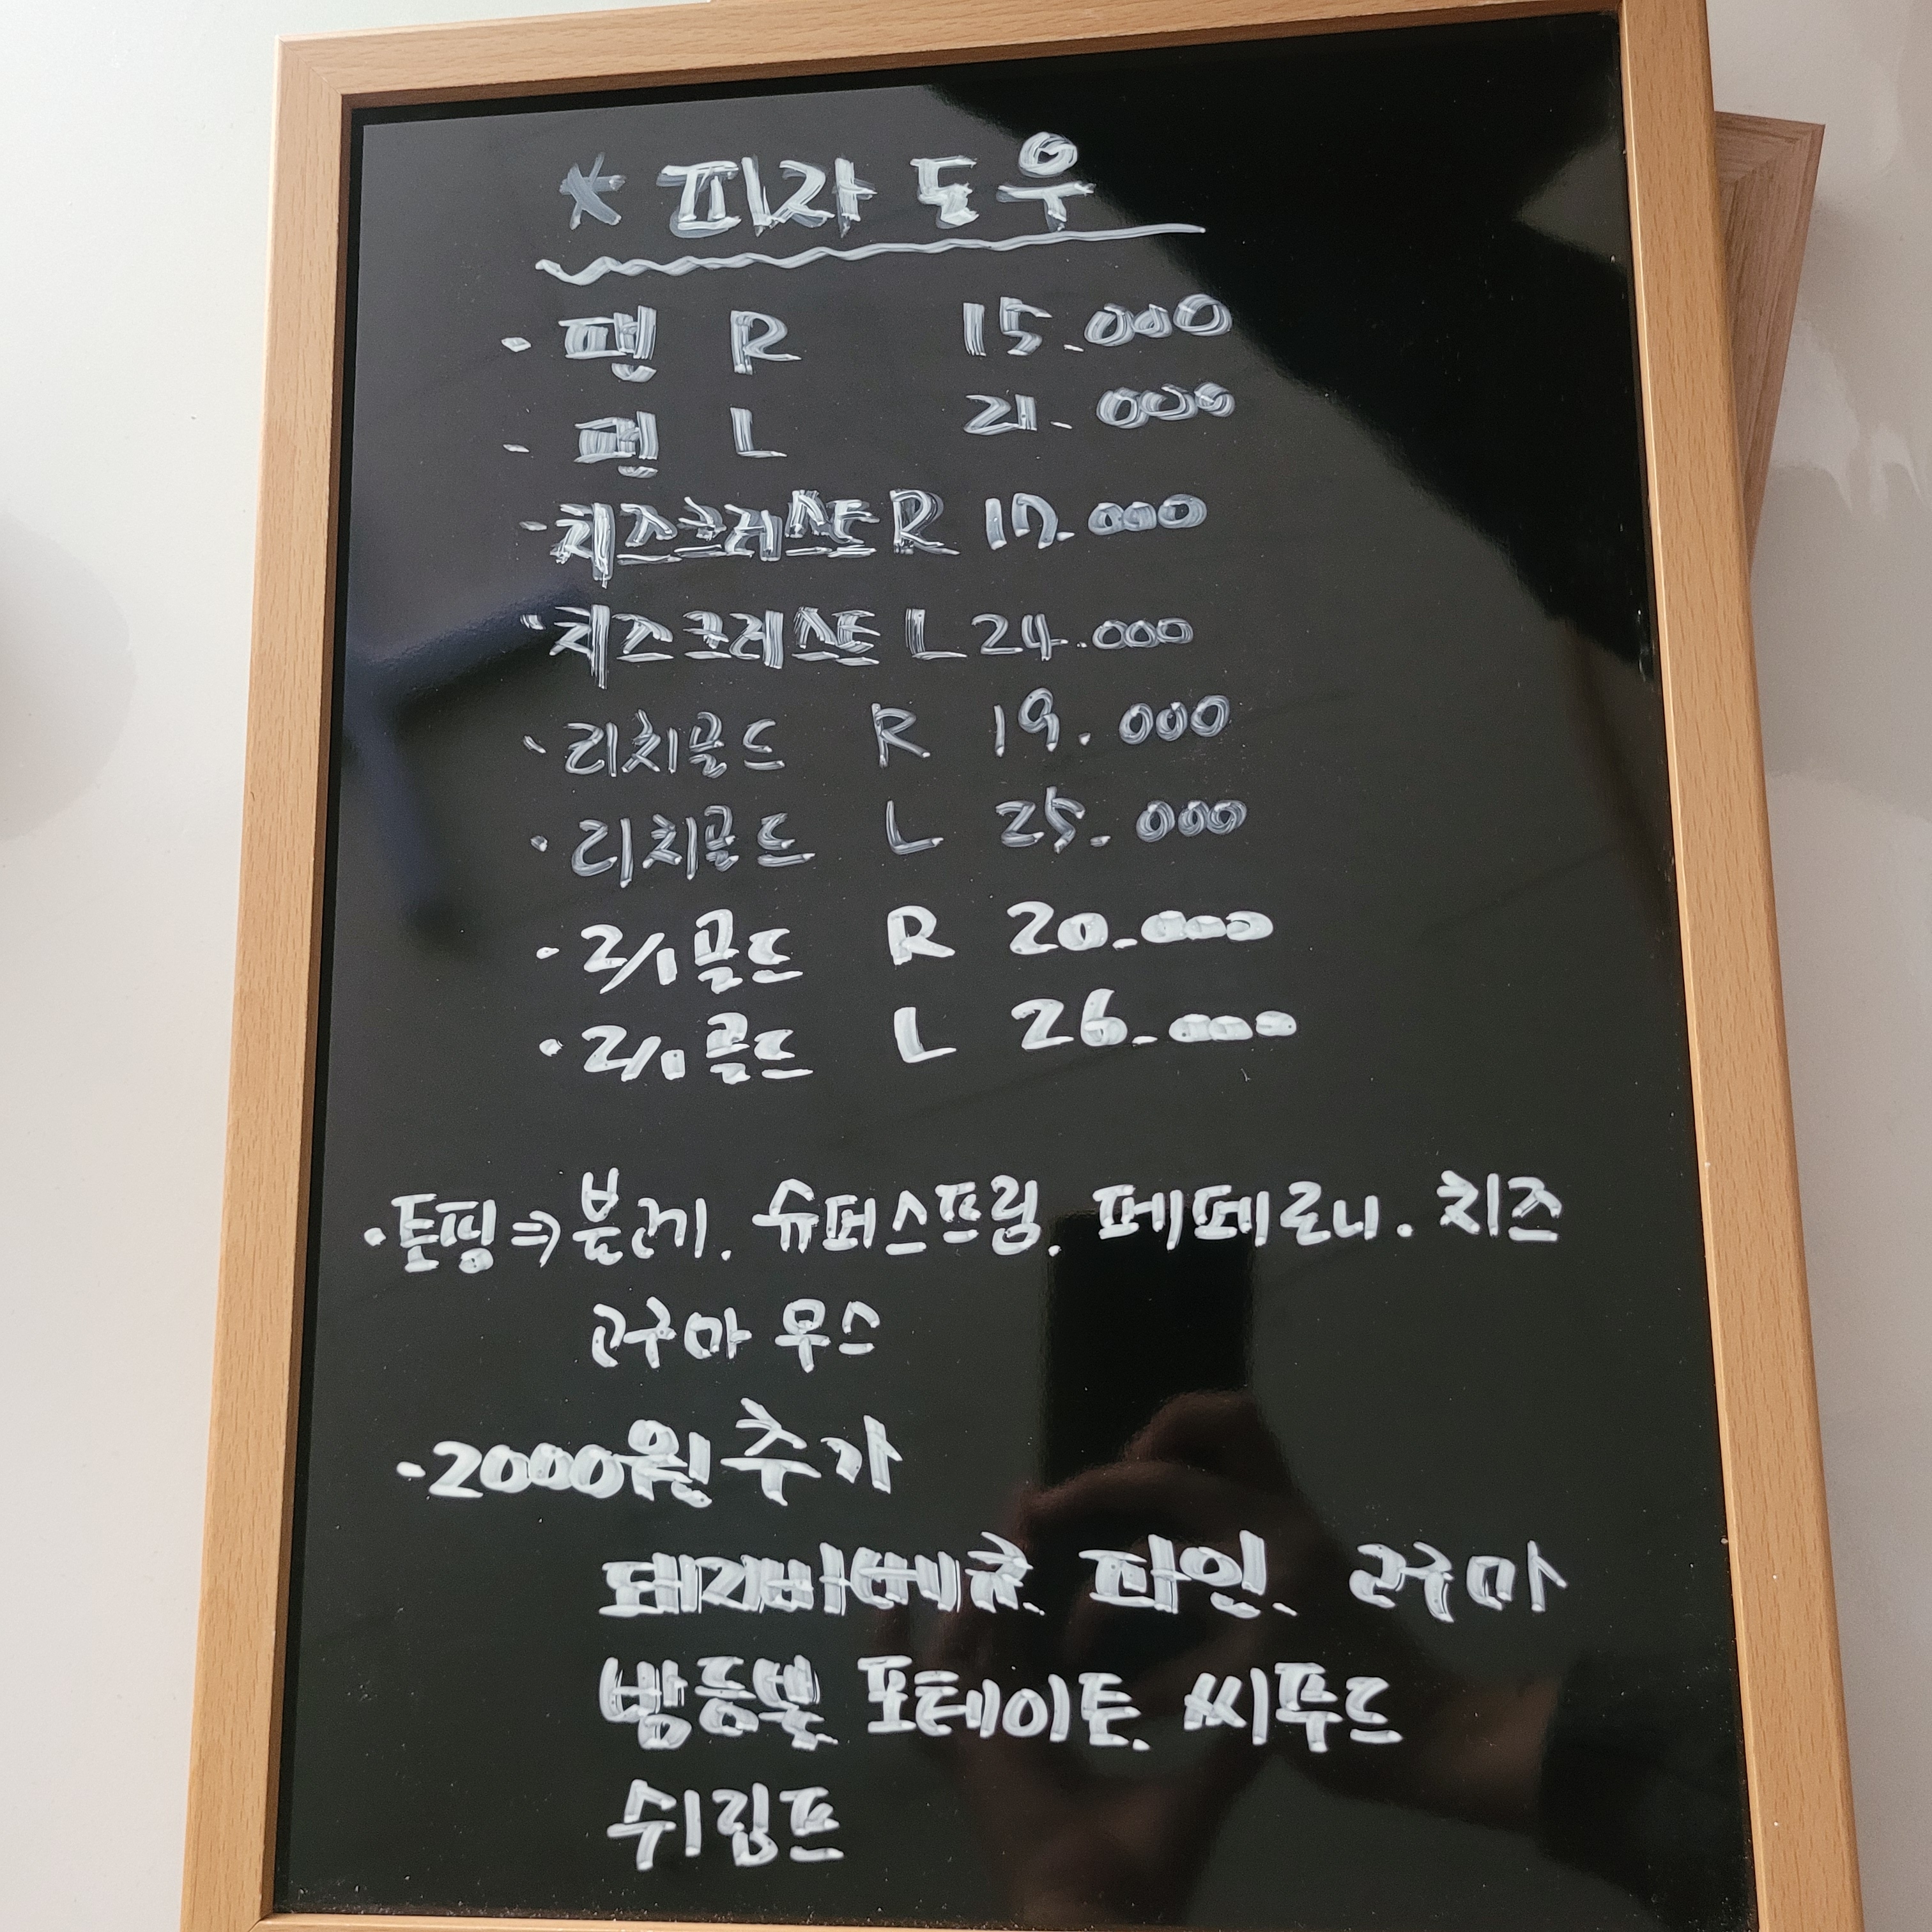 * 피자 도우
· 팬 R 15.000
· 팬 L 21.000
· 치즈크러스트 R 17.000
· 치즈크러스트 L 24.000
· 리치골드 R 19.000
· 리치골드 L 25.000
· 2/1 골드 R 20.000
· 2/1 골드 L 26.000
· 토핑 ⇒ 불고기. 슈퍼스프림. 페페로니. 치즈
고구마 무스
· 2000원 추가
돼지바베큐. 파인. 고구마
포테이토. 씨푸드
쉬림프